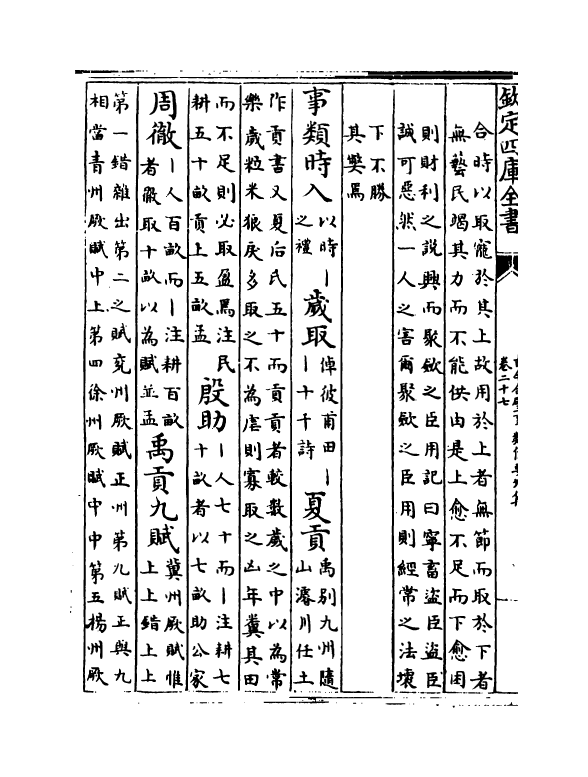 欽定四庫全書
卷二十七
合時以取寵於其上故用於上者無節而取於下者
無藝民竭其力而不能供由是上愈不足而下愈困
則財利之說興而聚歛之臣用記曰寧畜盜臣盜臣
誠可惡然一人之害爾聚歛之臣用則經常之法壞
下不勝
其獘焉
事類時入以時丨之禮歲取倬彼甫田丨丨十千詩夏貢禹别九州隨山濬川任土
作貢書又夏后氏五十而貢貢者較數歲之中以為常
樂歲粒米狼戾多取之不為虐則寡取之凶年糞其田
而不足則必取盈焉注民耕五十畝貢上五畝孟殷助丨人七十而丨注耕七十畝者以七畝助公家
周徹丨人百畝而丨注耕百畝者徹取十畝以為賦並孟禹貢九賦冀州厥賦惟上上錯上上
第一錯雜出第二之賦兖州厥賦正州第九賦正與九
相當青州厥賦中上第四徐州厥賦中中第五楊州厥